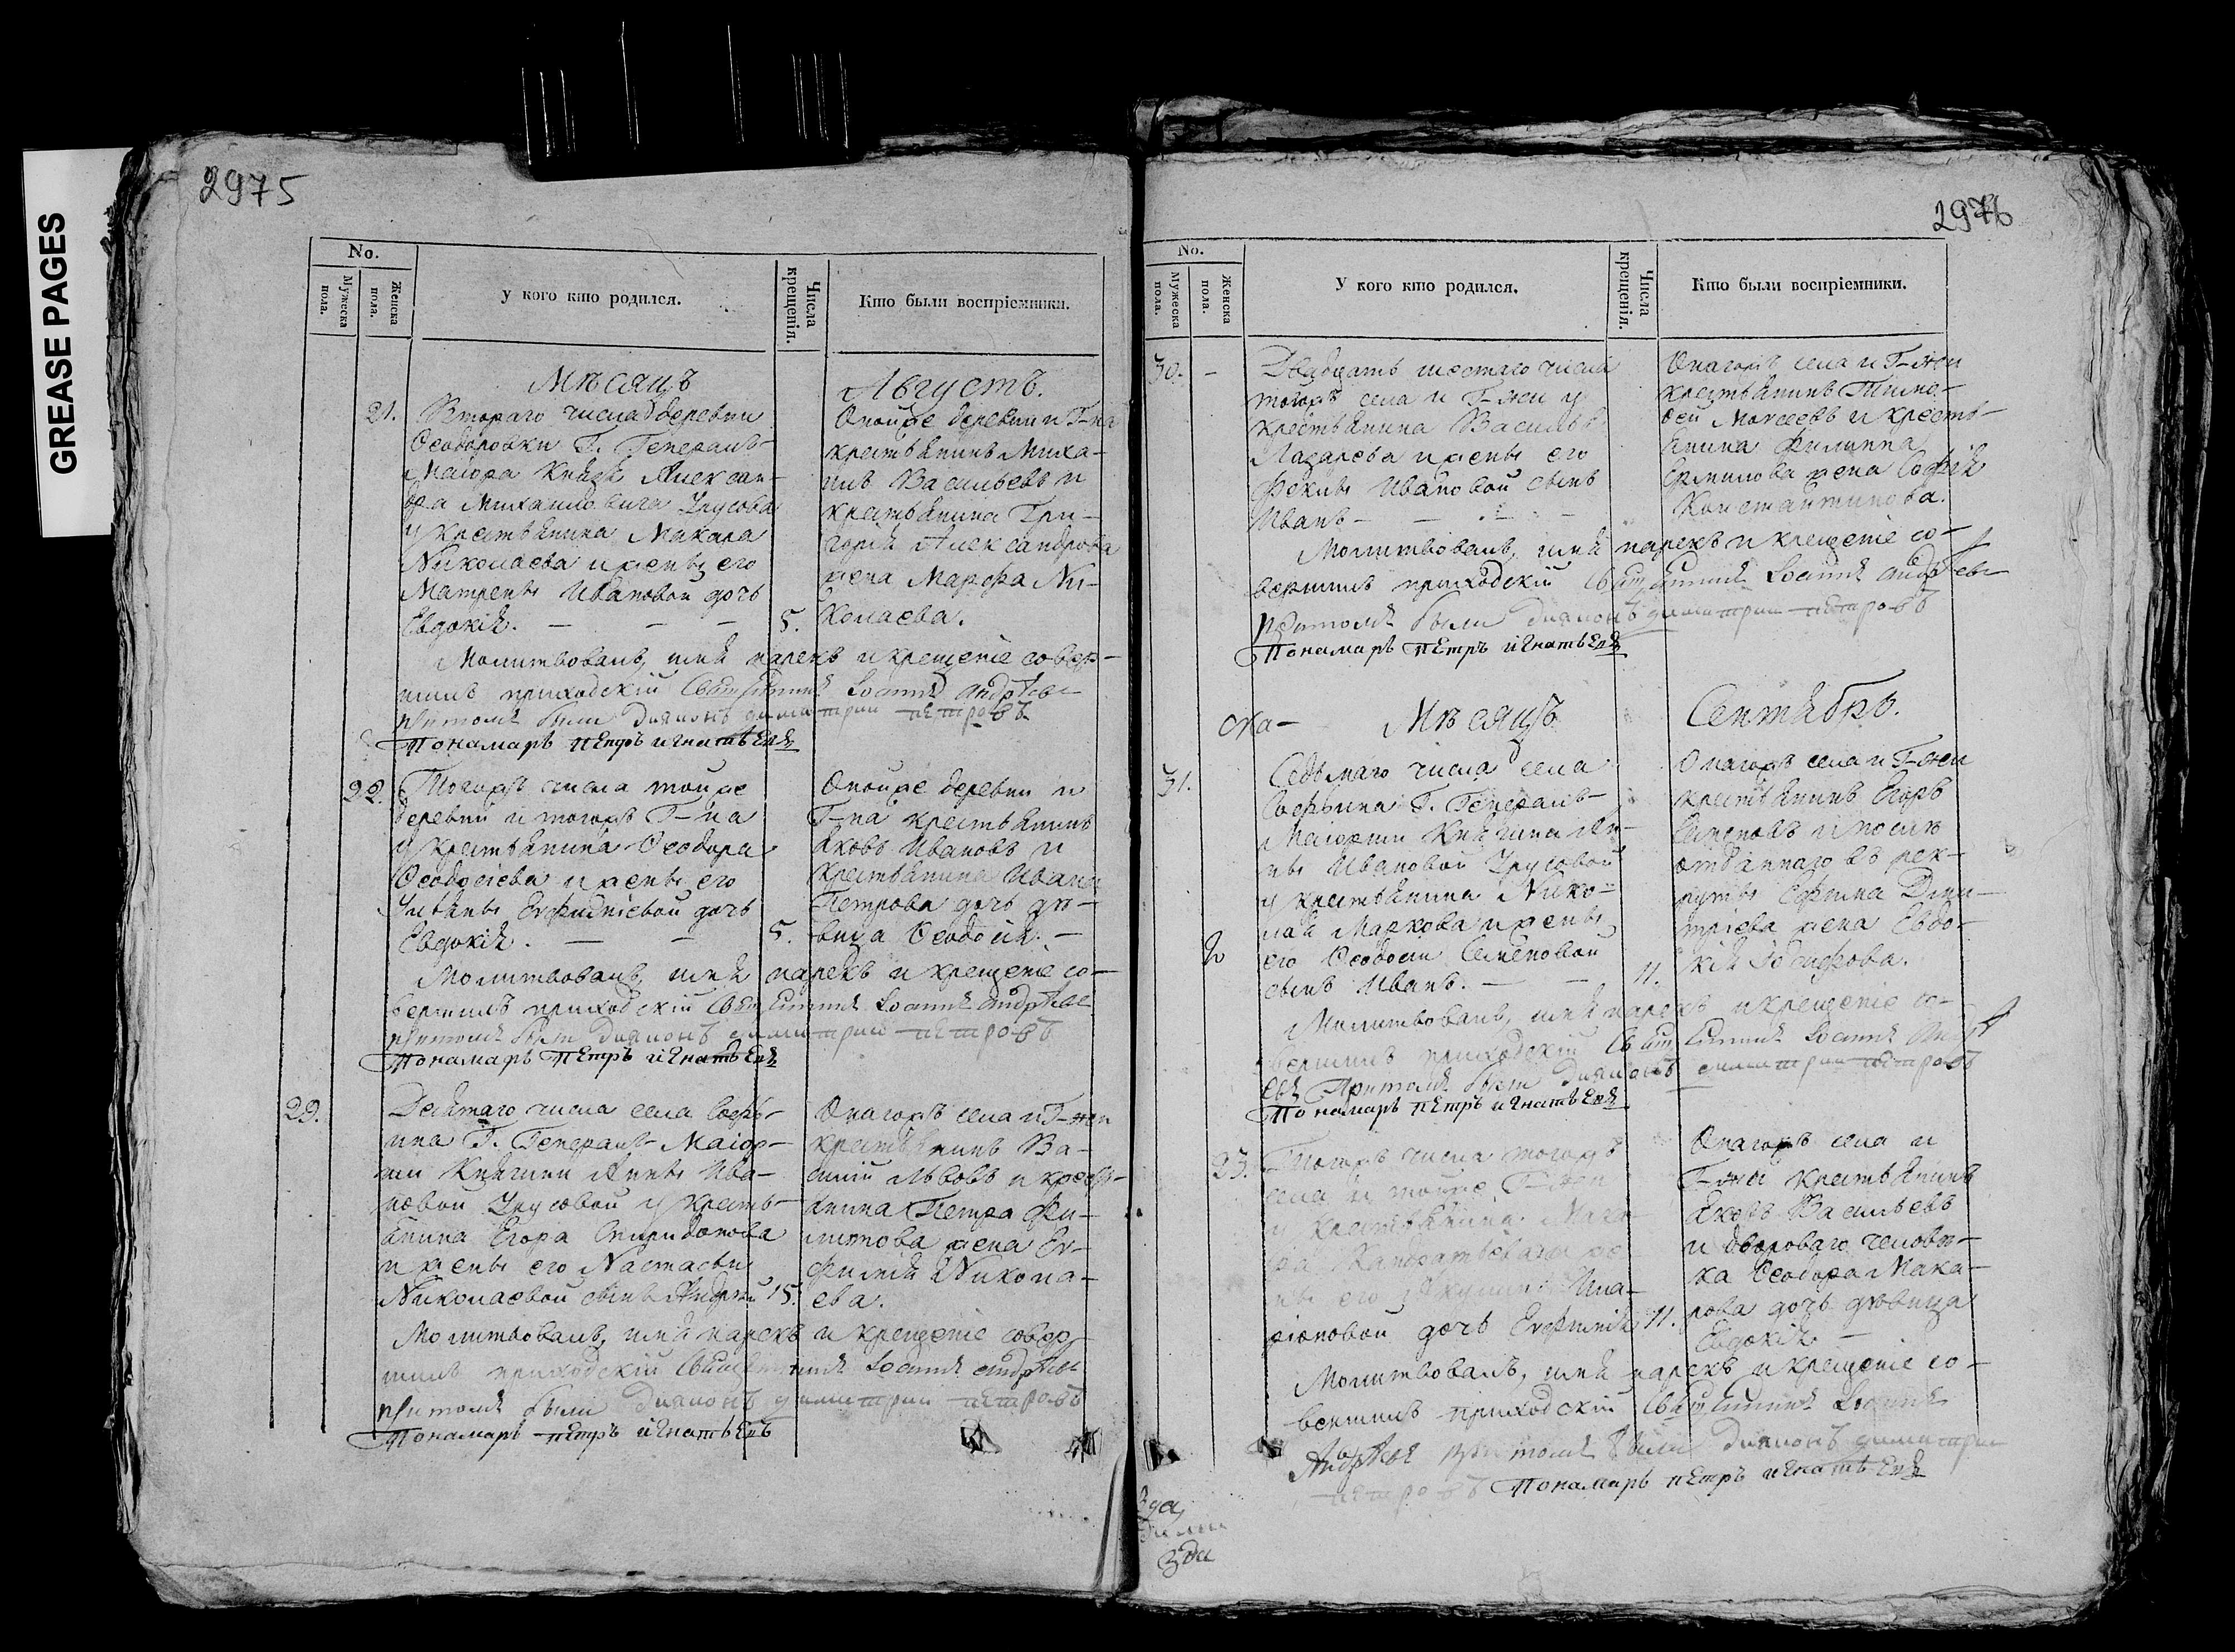 GREASE PAGES
2975
No.
Мужеска пола.
Женска пола.
У кого кто родился.
Числа крещенія.
Кто были воспріемники.
Мѣсяцъ
Августъ.
21.
Втораго числа деревни
Ѳеодоровки Г. Генералъ-
Маіора Князя Алексан-
дра Михаиловича Урусова
у крестьянина Макара
Николаева и жены его
Матрены Ивановой дочь
Евдокія. — — —
5.
Оной же деревни и Г-на
крестьянинъ Миха-
илъ Васильевъ и
крестьянина Гри-
горія Александрова
жена Марфа Ни-
колаева.
Молитвовалъ, имя нарекъ и крещеніе совер-
шилъ приходскій Священникъ Іоаннъ Андрѣевъ
притомъ были Диаконъ Димитрий Петровъ
Пономарь Петръ Игнатьевъ
22.
Тогожъ числа тойже
деревни и тогожъ Г-на
у крестьянина Ѳеодора
Ѳеодосіева и жены его
Ульяны дочь
Евдокія. — —
5.
Оной же деревни и
Г-на крестьянинъ
Яковъ Ивановъ и
крестьянина Ивана
Петрова дочь дѣ-
вица Ѳеодосія. —
Молитвовалъ, имя нарекъ и крещеніе со-
вершилъ приходскій Священникъ Іоаннъ Андрѣевъ
притомъ были Диаконъ Димитрий Петровъ
Пономарь Петръ Игнатьевъ
29.
Девятаго числа села Софь-
ина Г. Генералъ-Маіор-
ши Княгини Анны Ива-
новой Урусовой у кресть-
янина Егора Спиридонова
и жены его Настасьи
Николаевой сынъ Андрей
15.
Онагожъ села и Г-жи
крестьянинъ Ва-
силій Львовъ и кресть-
янина Петра Фи-
липова жена Ев-
фимія Никола-
ева.
Молитвовалъ, имя нарекъ и крещеніе совер-
шилъ приходскій Священникъ Іоаннъ Андрѣевъ
притомъ были Диаконъ Димитрии Петровъ
Пономарь Петръ Игнатьевъ
2976
No.
Мужеска пола.
Женска пола.
У кого кто родился.
Числа крещенія.
Кто были воспріемники.
30. -
Двадцать шестаго числа
тогожъ села и Г-жи у
крестьянина Василья
Лазарева и жены его
Феклы Ивановой сынъ
Иванъ — —
Онагожъ села и Г-жи
крестьянинъ Тимо-
фей Моисеевъ и кресть-
янина Филиппа
Ермилова жена Софія
Константинова.
Молитвовалъ, имя нарекъ и крещеніе со-
вершилъ приходскій Священникъ Іоаннъ Андрѣевъ
притомъ были Диаконъ Димитрии Петровъ
Пономарь Петръ Игнатьевъ
ска-
Мѣсяцъ
Сентябрь.
31.
Седьмаго числа села
Софьина Г. Генералъ-
Маіорши Княгини Ан-
ны Ивановой Урусовой
у крестьянина Нико-
лая Маркова и жены
его Ѳеодосіи Семеновой
сынъ Иванъ. — —
11.
Онагожъ села и Г-жи
крестьянинъ Егоръ
Семеновъ и послѣ
отданнаго въ рек-
руты Ефима Дми-
тріева жена Евдо-
кія Іосифова.
Молитвовалъ, имя нарекъ и крещеніе со-
вершилъ приходскій Священникъ Іоаннъ Андрѣ-
евъ Притомъ были Диаконъ Димитрии Петровъ
Пономарь Петръ Игнатьевъ
23.
Тогожъ числа тогожъ
села и тойже Г-жи
у крестьянина Мака-
ра Кондратьева и же-
ны его Акулины Ила-
ріоновой дочь Евфимія
11.
Онагожъ села и
Г-жи крестьянинъ
Васильевъ
и двороваго человѣ-
ка Ѳеодора Мака-
рова дочь дѣвица
Евдокія. —
Молитвовалъ, имя нарекъ и крещеніе со-
вершилъ приходскій Священникъ Іоаннъ
Андрѣевъ притомъ были Диаконъ Димитрии
Петровъ Пономарь Петръ Игнатьевъ